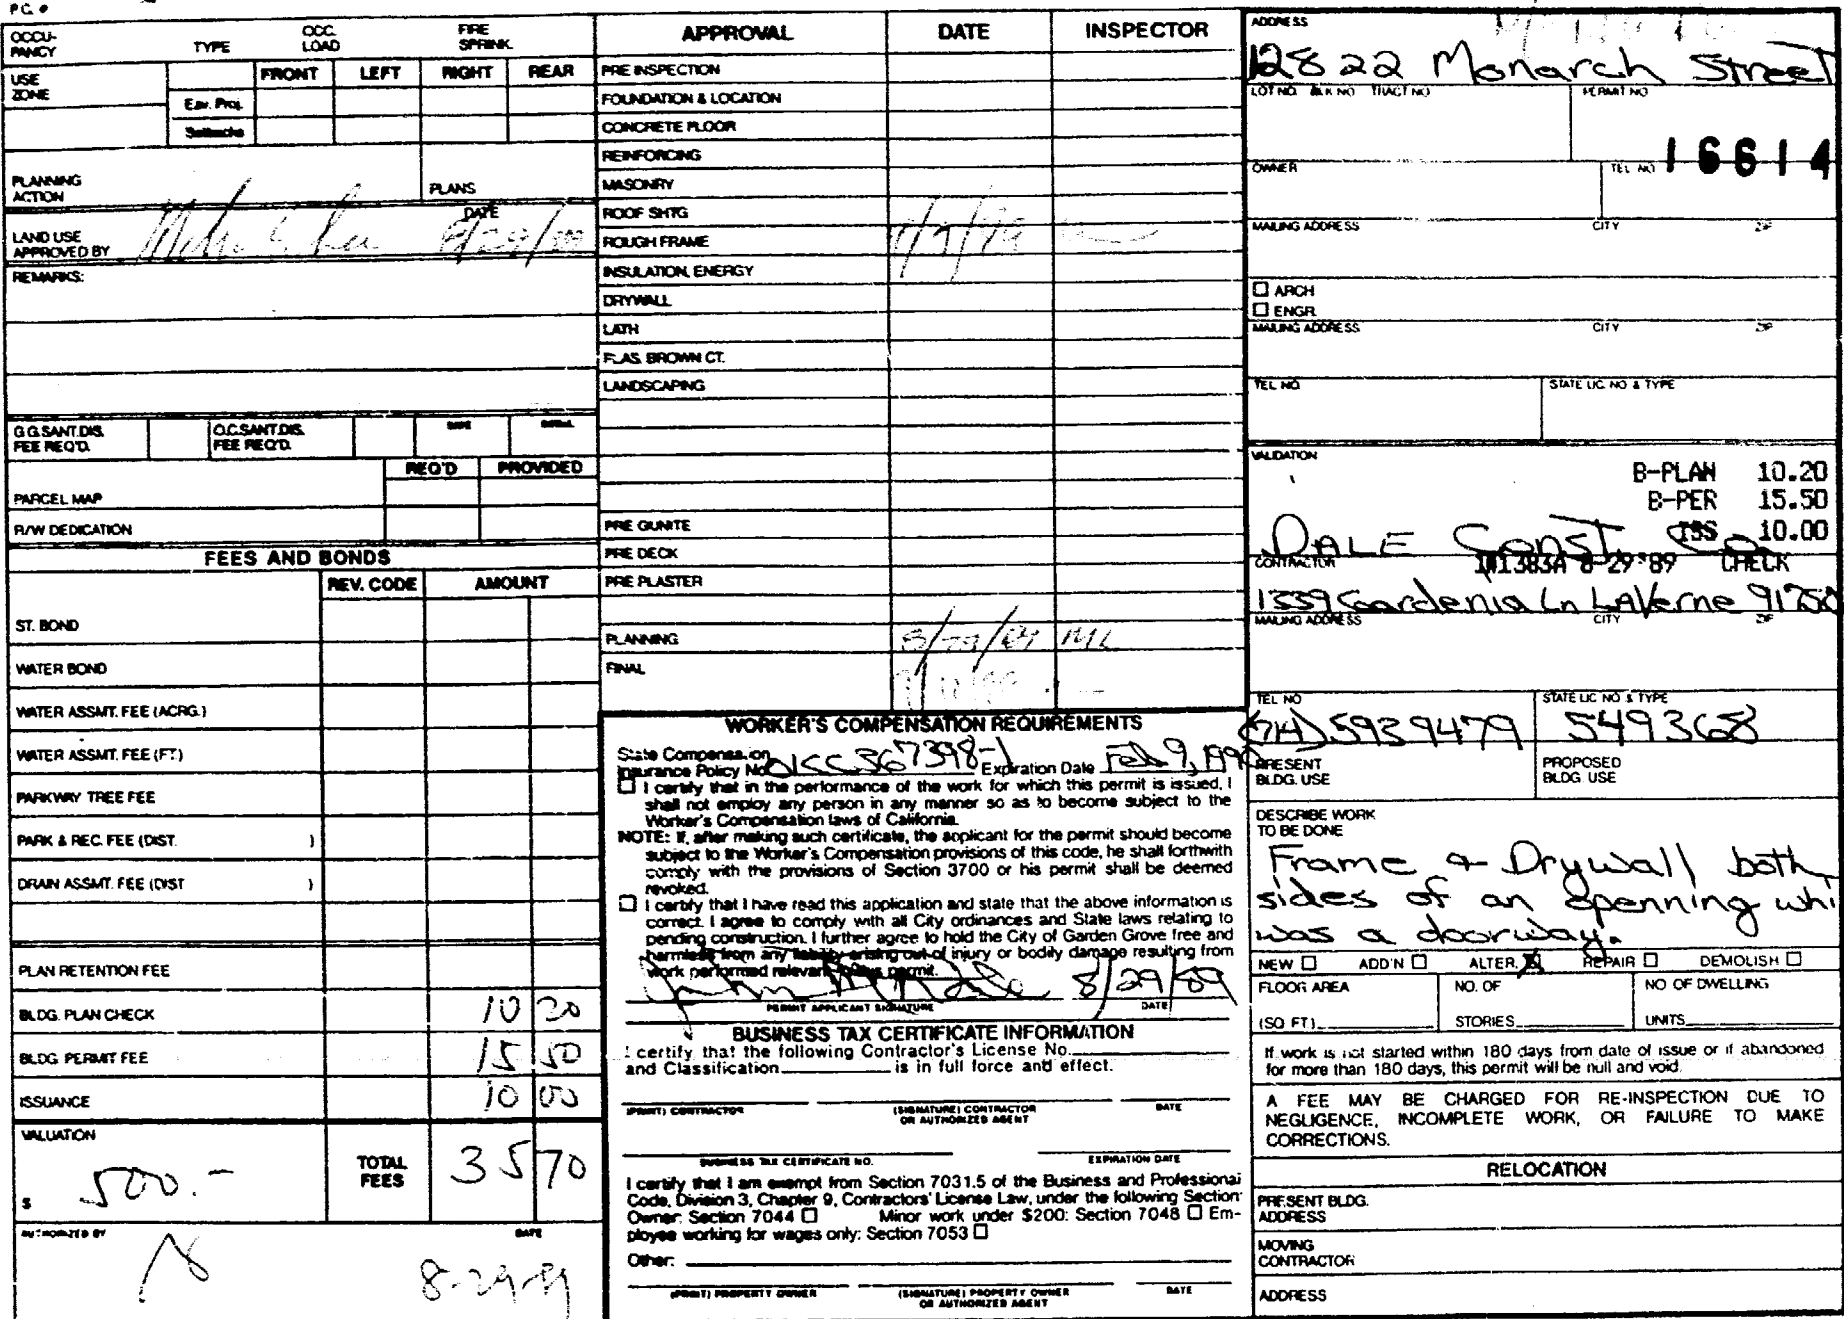 P.C. #
OCCU-
PANCY
TYPE
OCC.
LOAD
FIRE
SPRINK.
USE
ZONE
FRONT LEFT RIGHT REAR
Eav. Proj.
Setbacks
PLANNING
ACTION
PLANS
DATE
LAND USE
APPROVED BY
REMARKS:
G.G.SANT.DIS.
FEE REQ'D.
O.C.SANT.DIS.
FEE REQ'D.
DATE
REQ'D PROVIDED
PARCEL MAP
R/W DEDICATION
FEES AND BONDS
REV. CODE AMOUNT
ST. BOND
WATER BOND
WATER ASSMT. FEE (ACRG.)
WATER ASSMT. FEE (FT.)
PARKWAY TREE FEE
PARK & REC. FEE (DIST. )
DRAIN ASSMT. FEE (DIST )
PLAN RETENTION FEE
BLDG. PLAN CHECK 10 20
BLDG PERMIT FEE 15 50
ISSUANCE 10 00
VALUATION
$ 500.-
TOTAL
FEES
35 70
AUTHORIZED BY
DATE
8-29-89
APPROVAL DATE INSPECTOR
PRE INSPECTION
FOUNDATION & LOCATION
CONCRETE FLOOR
REINFORCING
MASONRY
ROOF SHTG
ROUGH FRAME
INSULATION, ENERGY
DRYWALL
LATH
PLAS. BROWN CT.
LANDSCAPING
PRE GUNITE
PRE DECK
PRE PLASTER
PLANNING 8/29/89 ML
FINAL
WORKER'S COMPENSATION REQUIREMENTS
State Compensation
Insurance Policy No. Expiration Date Feb 9,
I certify that in the performance of the work for which this permit is issued, I
shall not employ any person in any manner so as to become subject to the
Worker's Compensation laws of California.
NOTE: If, after making such certificate, the applicant for the permit should become
subject to the Worker's Compensation provisions of this code, he shall forthwith
comply with the provisions of Section 3700 or his permit shall be deemed
revoked.
I certify that I have read this application and state that the above information is
correct. I agree to comply with all City ordinances and State laws relating to
pending construction. I further agree to hold the City of Garden Grove free and
harmless from any liability arising out of injury or bodily damage resulting from
work performed relevant to this permit.
8/29/89
PERMIT APPLICANT SIGNATURE DATE
BUSINESS TAX CERTIFICATE INFORMATION
I certify that the following Contractor's License No.
and Classification is in full force and effect.
(PRINT) CONTRACTOR (SIGNATURE) CONTRACTOR DATE
OR AUTHORIZED AGENT
BUSINESS TAX CERTIFICATE NO. EXPIRATION DATE
I certify that I am exempt from Section 7031.5 of the Business and Professional
Code, Division 3, Chapter 9, Contractors' License Law, under the following Section:
Owner: Section 7044 Minor work under $200: Section 7048 Em-
ployee working for wages only: Section 7053
Other:
(PRINT) PROPERTY OWNER (SIGNATURE) PROPERTY OWNER DATE
OR AUTHORIZED AGENT
ADDRESS
12822 Monarch Street
LOT NO. BLK NO. TRACT NO.
PERMIT NO.
16614
OWNER
TEL NO
MAILING ADDRESS CITY ZIP
ARCH
ENGR.
MAILING ADDRESS CITY ZIP
TEL NO. STATE LIC. NO & TYPE
VALIDATION
B-PLAN 10.20
B-PER 15.50
ISS 10.00
DALE CONST. Co
CONTRACTOR
8-29-89 CHECK
1339 Gardenia Ln LaVerne 91750
MAILING ADDRESS CITY ZIP
TEL NO STATE LIC NO & TYPE
(714) 5939479 549368
PRESENT
BLDG. USE
PROPOSED
BLDG USE
DESCRIBE WORK
TO BE DONE
Frame & Drywall both
sides of an openning whi
was a doorway.
NEW ADD'N ALTER. REPAIR DEMOLISH
FLOOR AREA NO. OF NO OF DWELLING
(SQ FT) STORIES UNITS
If work is not started within 180 days from date of issue or if abandoned
for more than 180 days, this permit will be null and void.
A FEE MAY BE CHARGED FOR RE-INSPECTION DUE TO
NEGLIGENCE, INCOMPLETE WORK, OR FAILURE TO MAKE
CORRECTIONS.
RELOCATION
PRESENT BLDG.
ADDRESS
MOVING
CONTRACTOR
ADDRESS